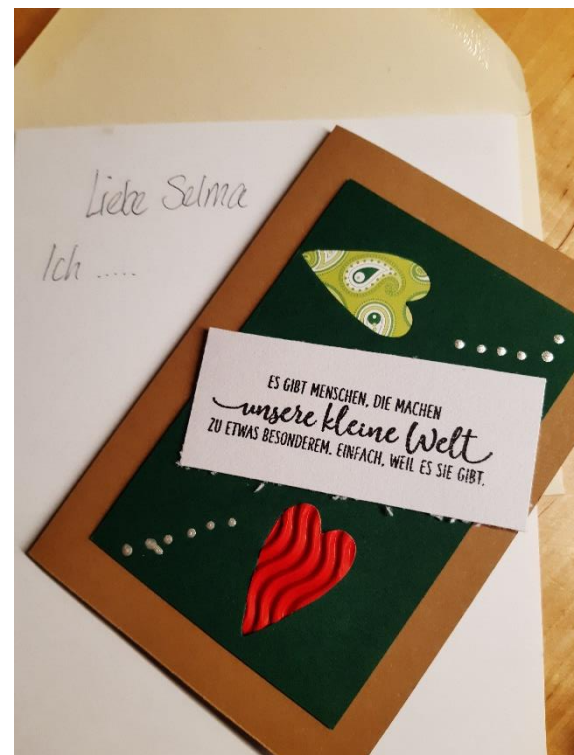 Liebe Selma
Ich .....
ES GIBT MENSCHEN, DIE MACHEN
unsere kleine Welt
ZU ETWAS BESONDEREM. EINFACH, WEIL ES SIE GIBT.